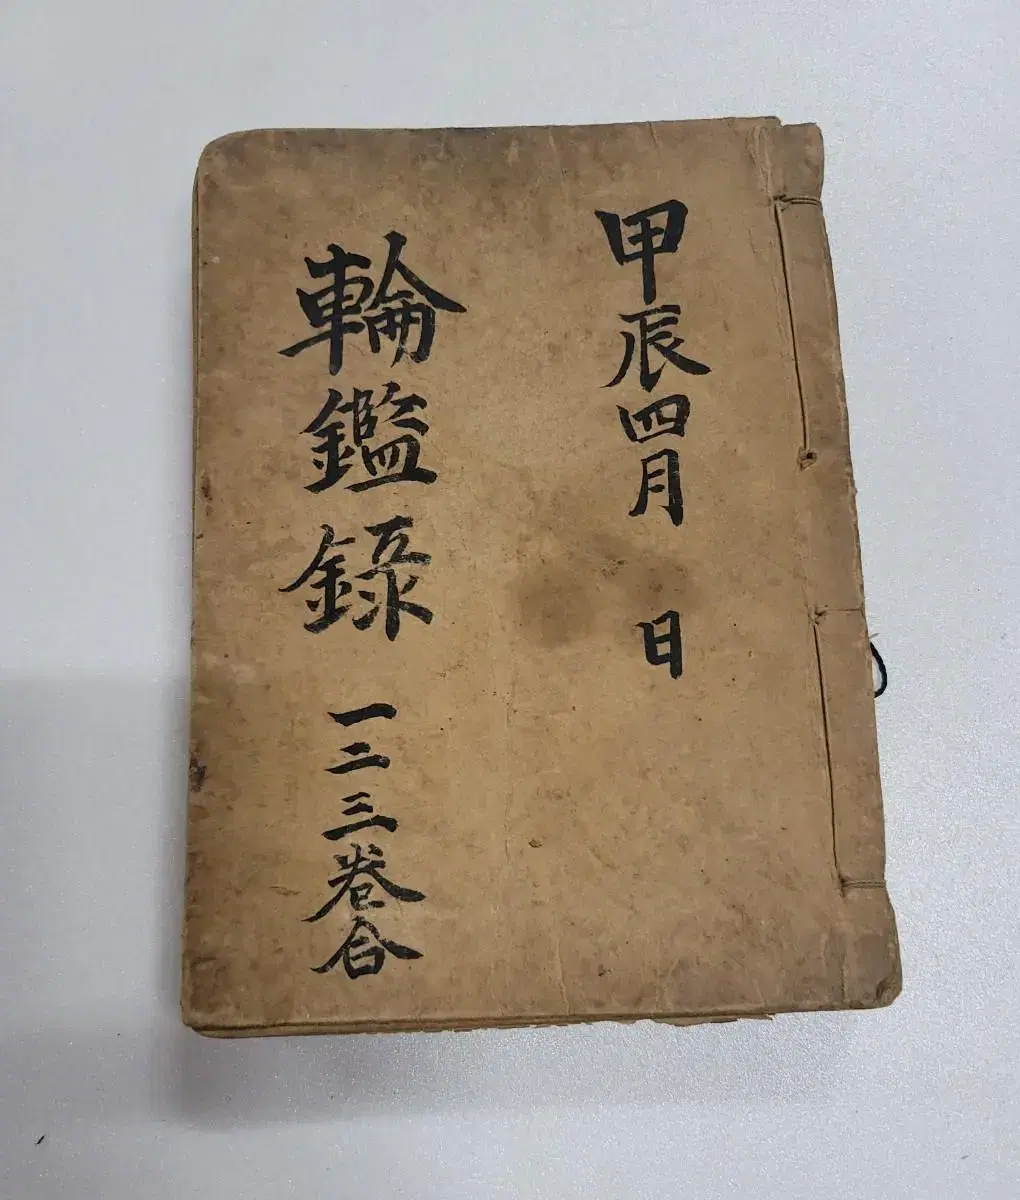 甲辰四月 日
輪鑑錄 一二三卷合